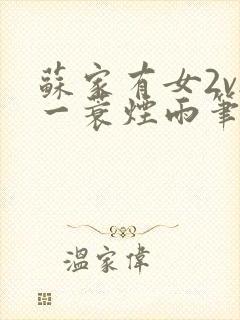 蘇家有女2v
一蓑煙雨筆
溫家偉